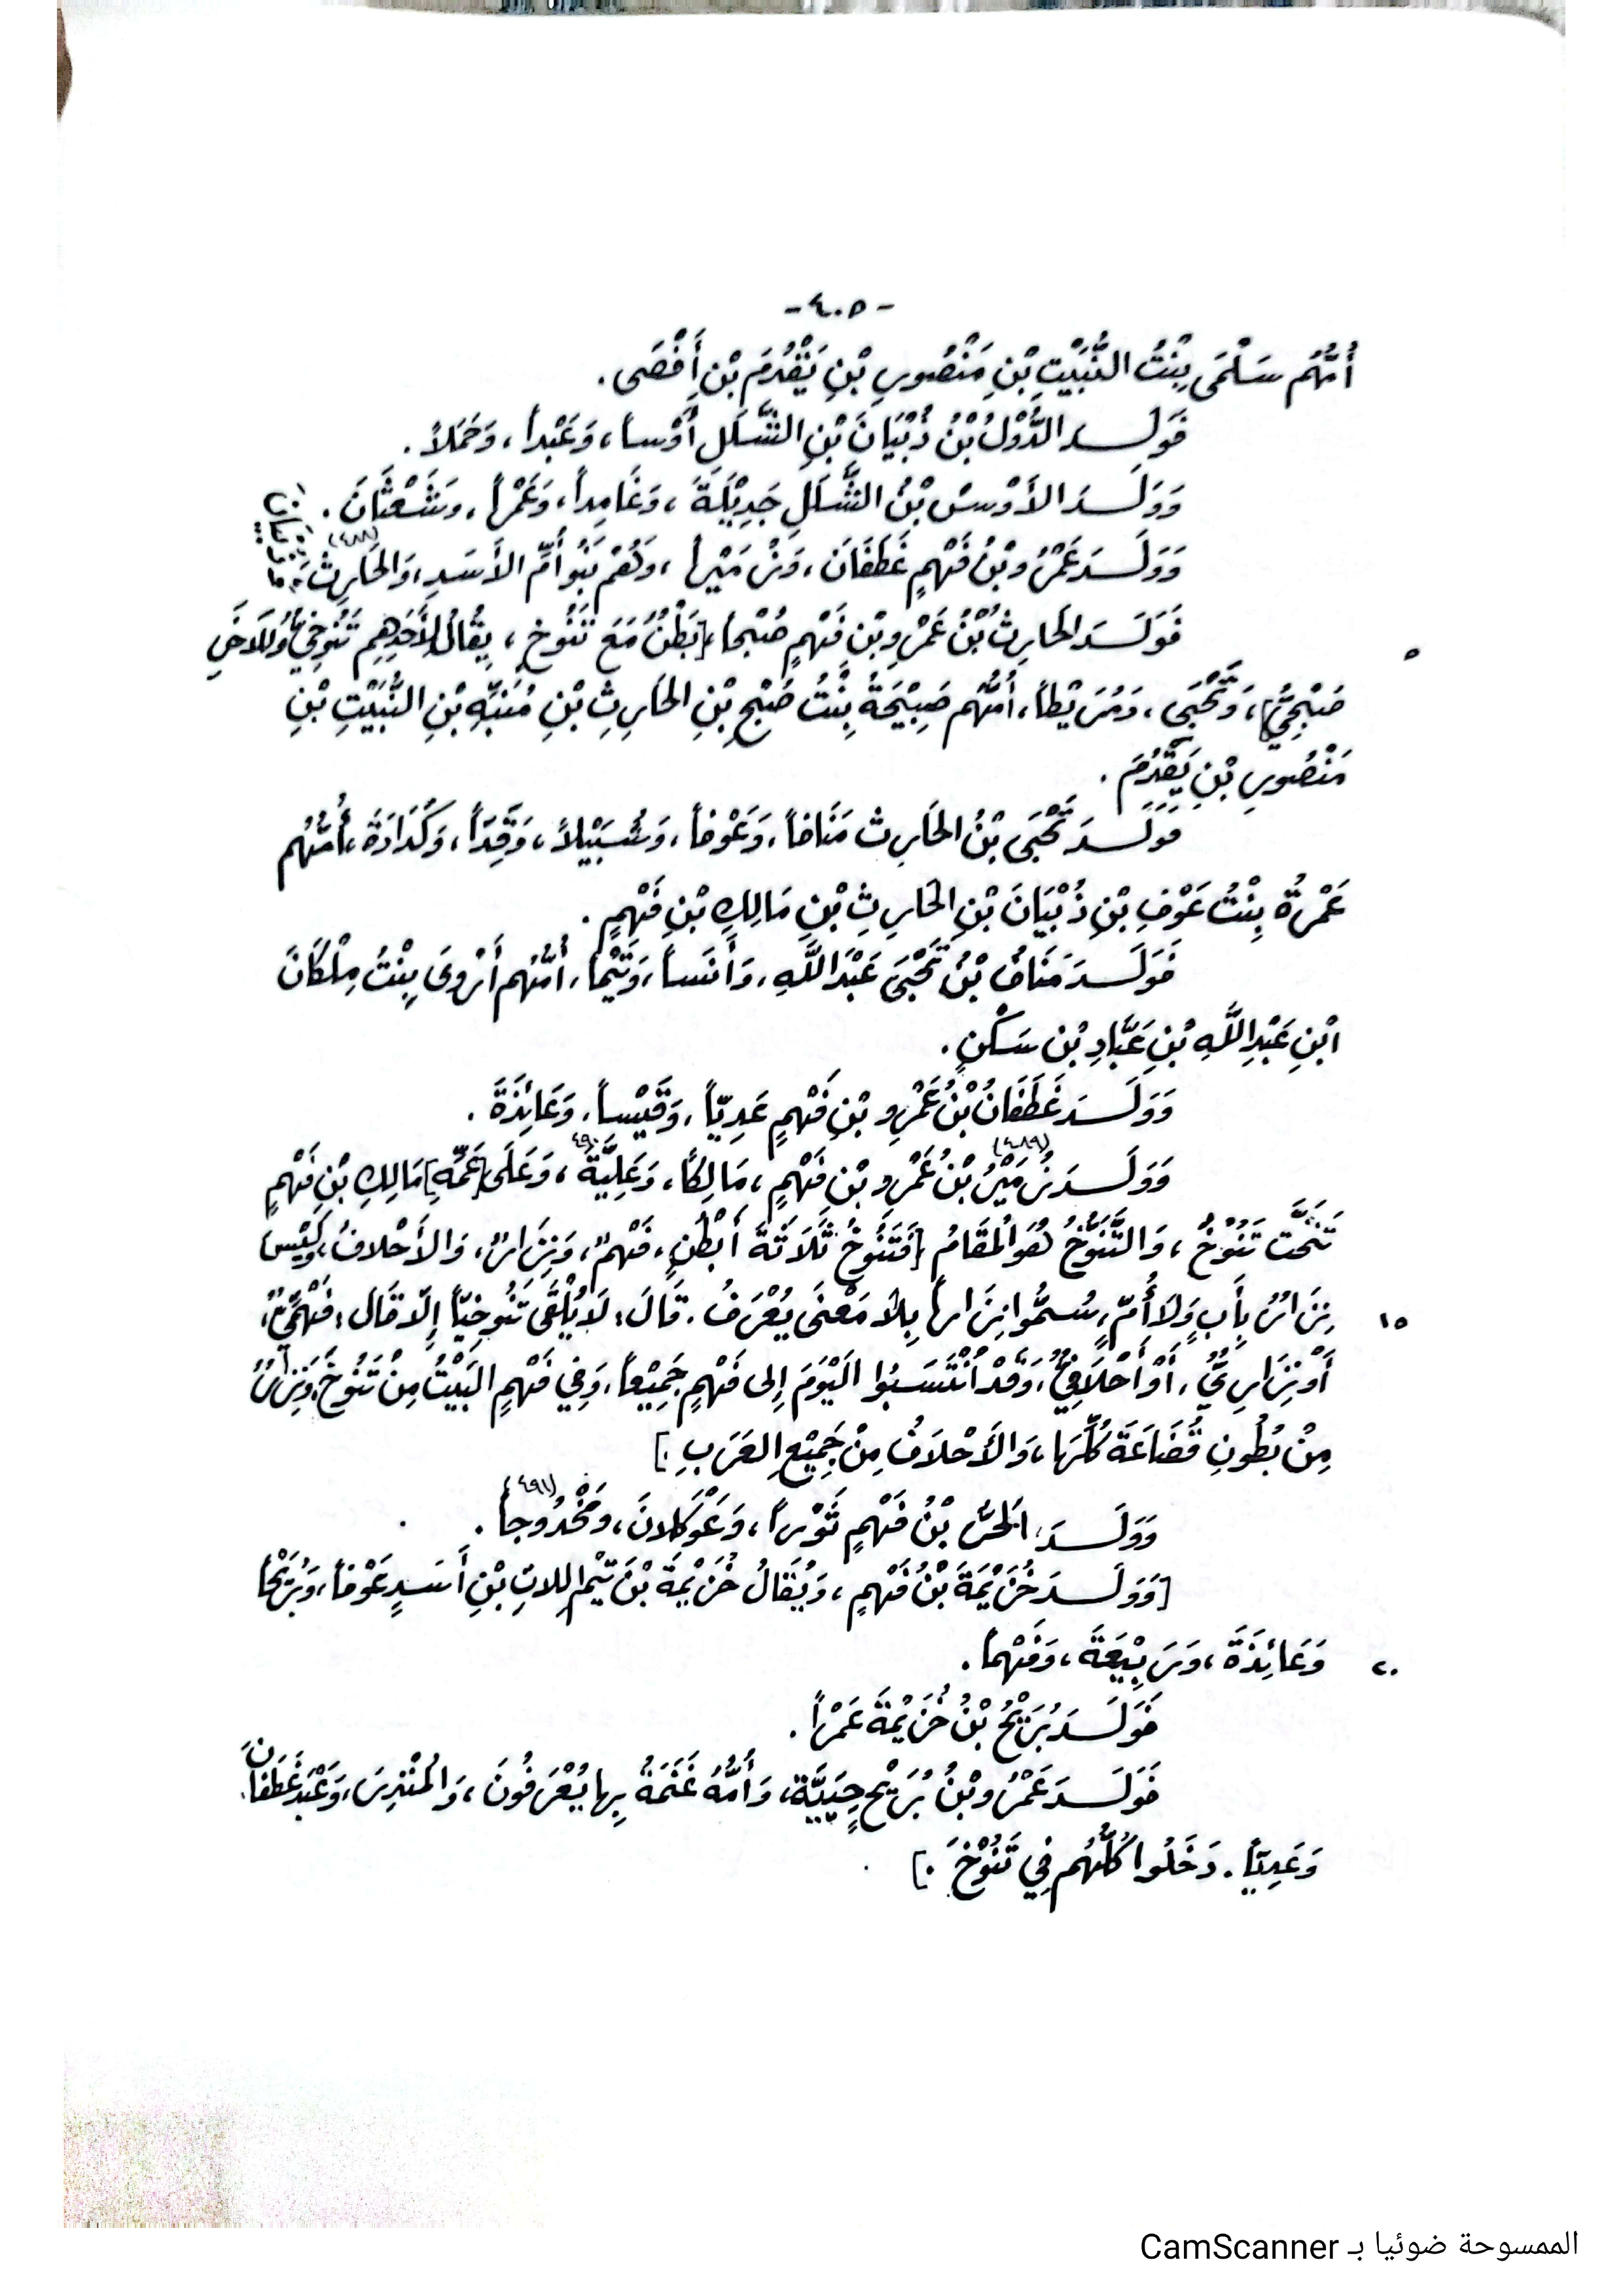 -٤٠٥-
أُمُّهُم سَلْمَى بِنْتُ النَّبِيْتِ بْنِ مَنْصُورِ بْنِ يَقْدُمَ بْنِ أَفْصَى.
فَوَلَدَ الدُّوْلُ بْنُ ذُبْيَانَ بْنِ الشَّلَلِ أَوْساً، وَعَبْداً، وَحَمَلاً.
وَوَلَدَ الأَوْسُ بْنُ الشَّلَلِ جَدِيْلَةَ، وَغَامِداً، وَعَمْراً، وَشَعْثَانَ.
وَوَلَدَ عَمْرُو بْنُ فَهْمٍ غَطَفَانَ، وَنُمَيْراً، وَهُمْ بَنُو أُمِّ الأَسَدِ، وَالحَارِثَ (٤٨٨)
فَوَلَدَ الحَارِثُ بْنُ عَمْرِو بْنِ فَهْمٍ صُبْحاً، [بَطْنٌ مَعَ تَنُوخٍ، يُقَالُ لِأَحَدِهِم تَنُوخِيٌّ وَللآخَرِ
صُبْحِيٌّ]، وَتَحْيَى، وَمُرَيْطاً، أُمُّهُم صَبِيْحَةُ بِنْتُ صُبْحِ بْنِ الحَارِثِ بْنِ مُنَبِّهِ بْنِ النَّبِيْتِ بْنِ
مَنْصُورِ بْنِ يَقْدُمَ.
فَوَلَدَ تَحْيَى بْنُ الحَارِثِ مَنَافاً، وَعَوْفاً، وَسُبَيْلاً، وَقِدّاً، وَكُدَادَةَ، أُمُّهُم
عَمْرَةُ بِنْتُ عَوْفِ بْنِ ذُبْيَانَ بْنِ الحَارِثِ بْنِ مَالِكِ بْنِ فَهْمٍ.
فَوَلَدَ مَنَافُ بْنُ تَحْيَى عَبْدَ اللَّهِ، وَأَنَساً، وَتَيْماً، أُمُّهُم أَرْوَى بِنْتُ مِلْكَانَ
ابْنِ عَبْدِ اللَّهِ بْنِ عَبَّادِ بْنِ سَكْنٍ.
وَوَلَدَ غَطَفَانُ بْنُ عَمْرِو بْنِ فَهْمٍ عَدِيّاً، وَقَيْساً، وَعَائِذَةَ.
وَوَلَدَ نُمَيْرُ (٤٨٩) بْنُ عَمْرِو بْنِ فَهْمٍ، مَالِكاً، وَعَلِيَّةَ ٤٩٠، وَعَلَى [عَمِّهِ] مَالِكِ بْنِ فَهْمٍ
تَنَخَّت تَنُوْخُ، وَالتَّنَوُّخُ هُوَ المُقَامُ [فَتَنُوخُ ثَلَاثَةَ أَبْطُنٍ، فَهْمٌ، وَنِزَارٌ، وَالأَحْلافُ، وَلَيْسَ
نِزَارٌ بِأَبٍ وَلَا أُمٍّ، سُمُّوا نِزَاراً بِلَا مَعْنَى يُعْرَفُ. قَالَ: لَا يُلْقَى تَنُوخِيّاً إِلَّا قَالَ: فَهْمِيٌّ،
أَوْ نِزَارِيٌّ، أَوْ أَحْلَافِيٌّ، وَقَدْ انْتَسَبُوا الْيَوْمَ إِلى فَهْمٍ جَمِيْعاً، وَفِي فَهْمٍ البَيْتُ مِنْ تَنُوخَ، وَنِزَارٌ
مِنْ بُطُونِ قُضَاعَةَ كُلِّهَا، وَالأَحْلَافُ مِنْ جَمِيْعِ العَرَبِ.]
وَوَلَدَ الحُرُّ بْنُ فَهْمٍ ثَوْراً، وَعَوْكَلانَ، وَمَخْدُوجاً (٤٩١).
[وَوَلَدَ خُزَيْمَةَ بْنُ فَهْمٍ، وَيُقَالُ خُزَيْمَةَ بْنَ تَيْمِ اللاتِ بْنِ أَسَدٍ عَوْفاً، وَبُرَيْحاً
وَعَائِذَةَ، وَرَبِيْعَةَ، وَفَهْماً.
فَوَلَدَ بُرَيْحُ بْنُ خُزَيْمَةَ عَمْراً.
فَوَلَدَ عَمْرُو بْنُ بُرَيْحٍ حِيَيَّةَ، وَأُمُّهُ غَنَمَةُ بِهَا يُعْرَفُونَ، وَالمُنْذِرَ، وَعَبْدَ غَطَفَانَ
وَعَدِيّاً. دَخَلُوا كُلُّهُم فِي تَنُوْخَ.]
٥
١٥
٢٠
الممسوحة ضوئيا بـ CamScanner